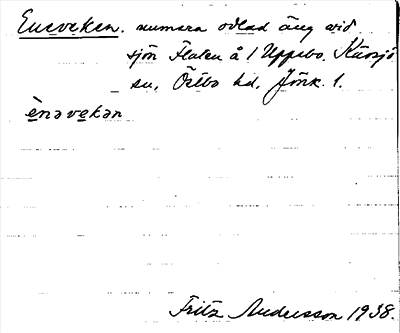 Eneveken. numera odlad äng vid
sjön Flaten å 1 Uppebo. Kävsjö
sn, Östbo hd, Jönk. l.
ènəvekən
Fritz Andersson 1938.